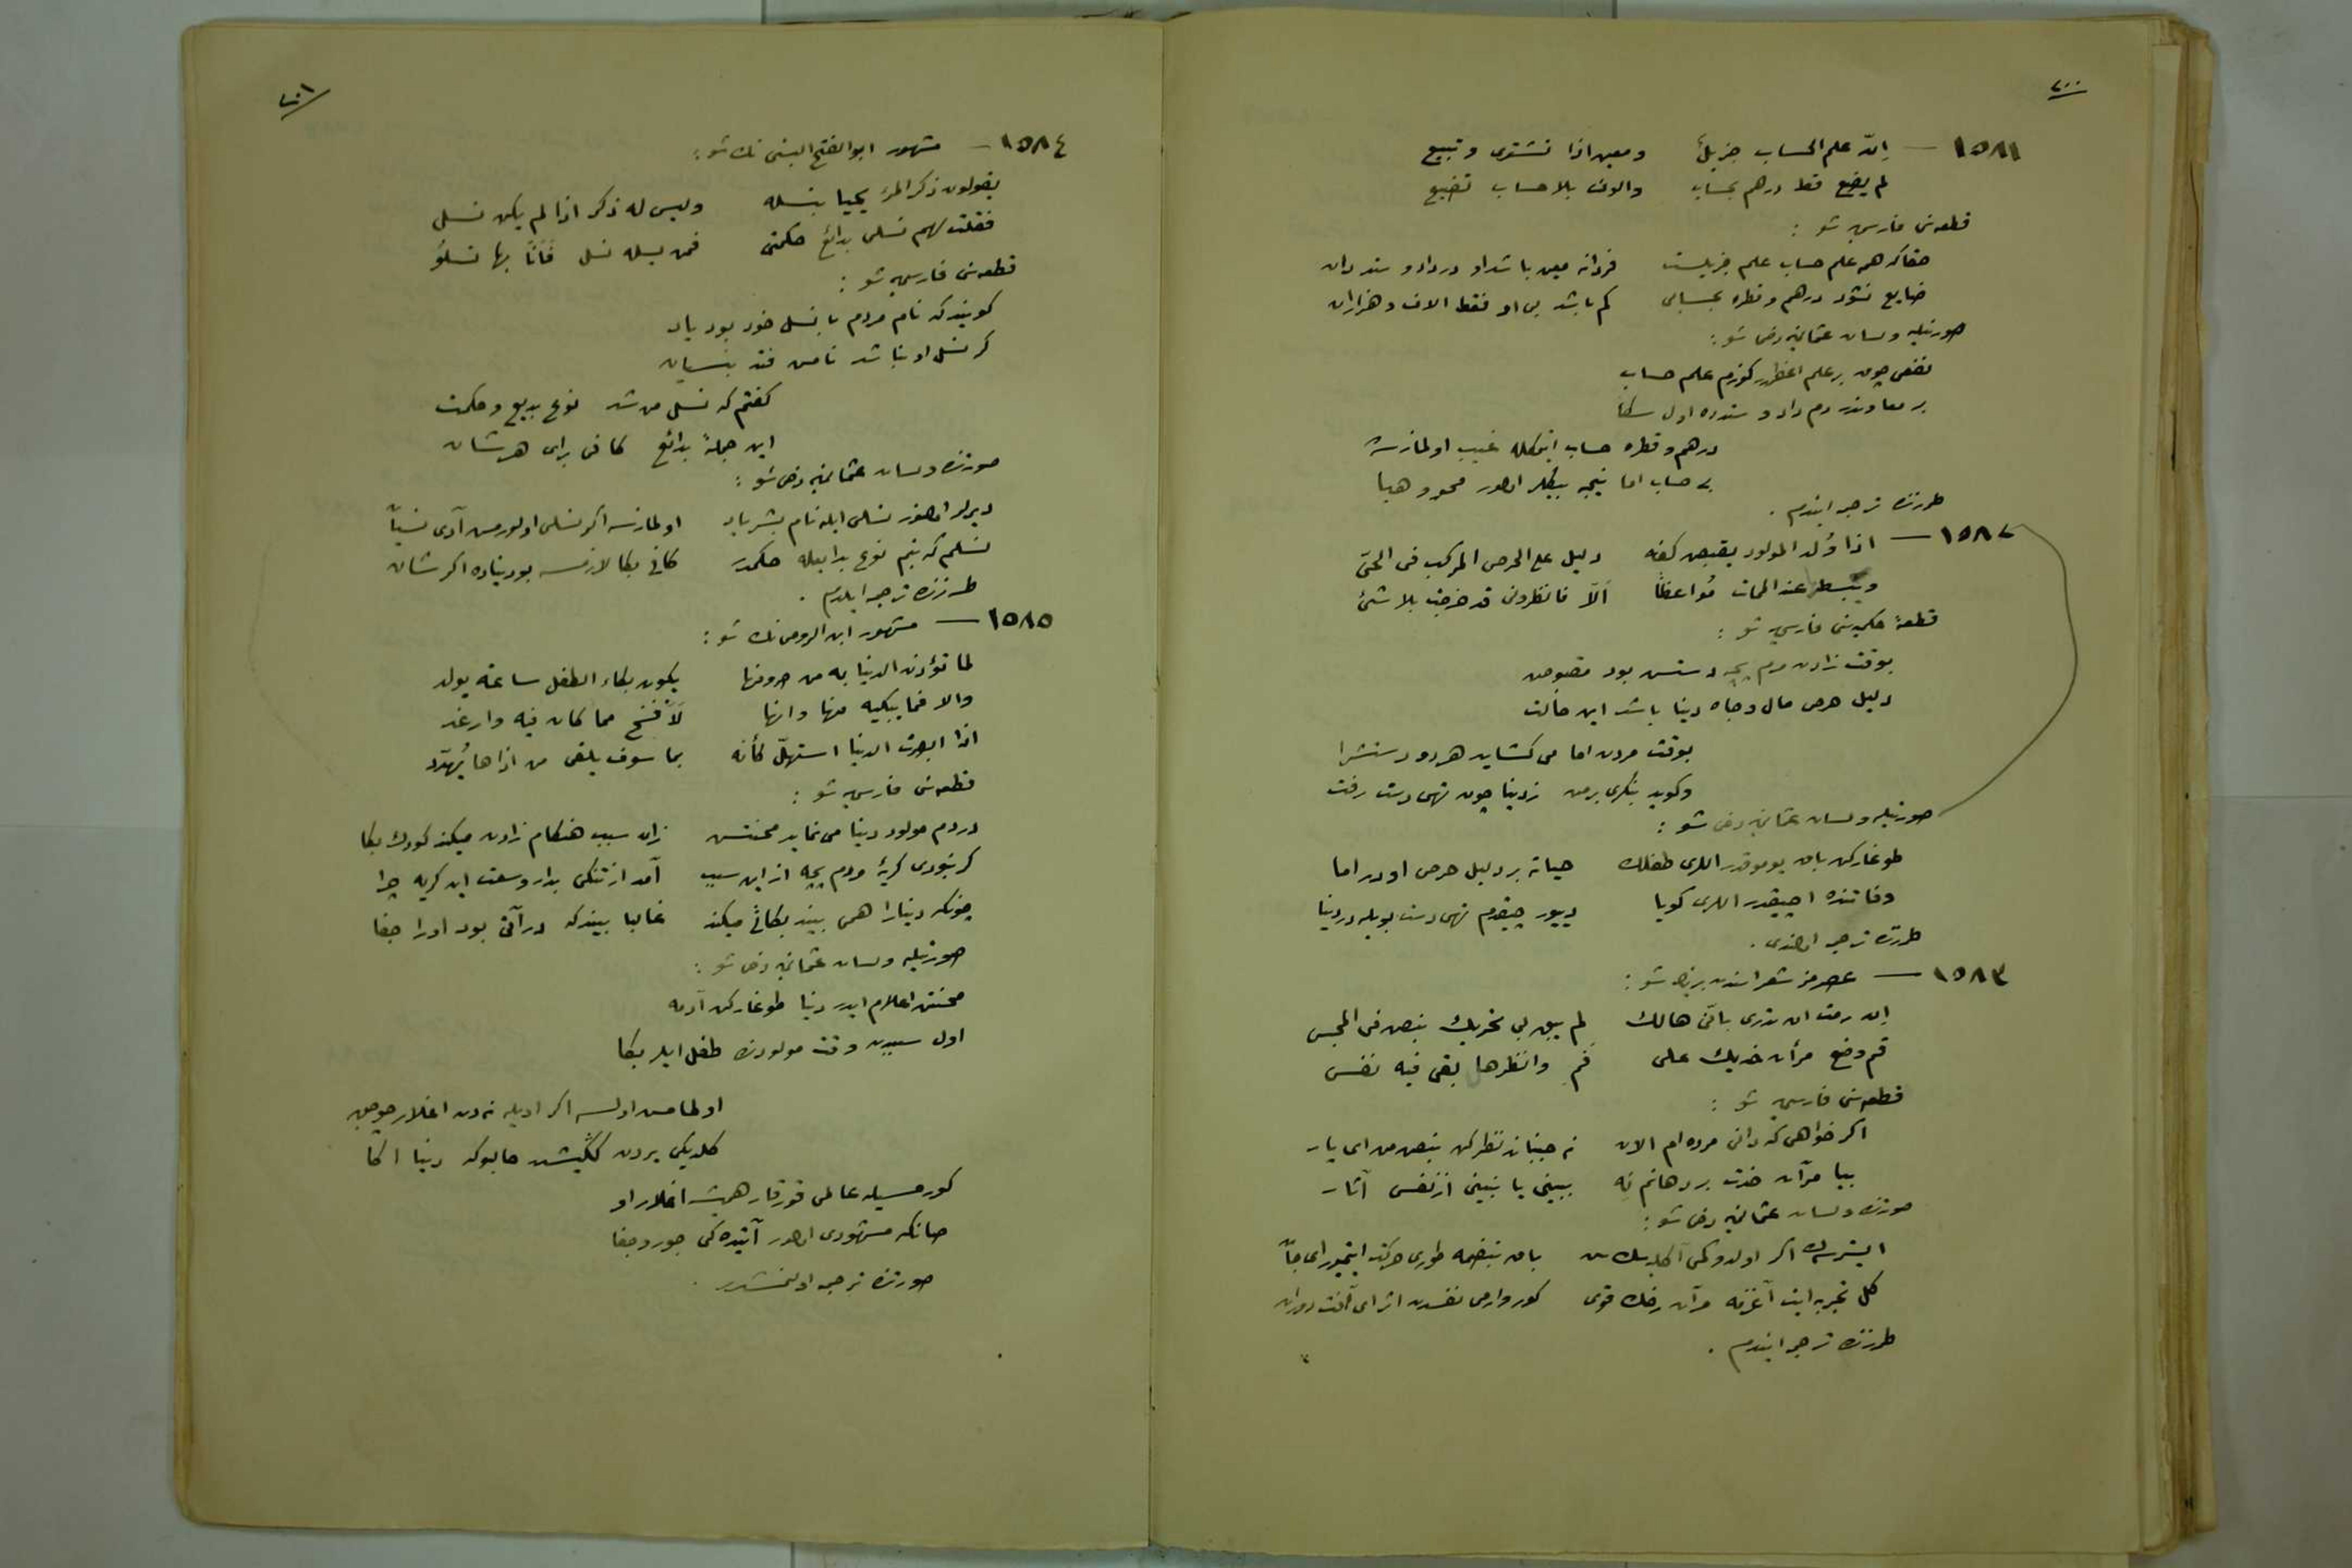 ٢٠٠
١٥٨١ — إنّ علم الحساب جزيلٌ ومعين اذا تشترى وتبيع
لم يضع قط درهم بحساب والوف بلا حساب تضيع
قطعه‌سنى فارسى شو :
حقا كه همه علم حساب علم جزيلست فردانه معين باشد او در داد وستد دان
ضايع نشود درهم وقطره بحسابى كم باشد بى او فقط الاف و هزاران
صورتيله ولسان عثمانيه دخى شو :
نفعى چوق بر علم اعظمدر كوزم علم حساب
بر معاوندر دم داد و ستدده اول سكا
درهم و قطره حساب ايتمكله غيب اولمازسه
بى حساب اما نيجه بيكلر اولور محو و هبا
طرزنده ترجمه ايتدم .
١٥٨٢ — اذا وُلد المولود يقبض كفه دليل على الحرص المركب فى الحىّ
ويبسطها عند الممات مُواعظاً ألا فانظرونى قد خرجت بلا شئ
قطعهٔ حكميه‌سنى فارسى شو :
بوقت زادن مردم بچه دستش بود مقبوض
دليل حرص مال و جاه دنيا باشد اين حالت
بوقت مردن اما مى كشايد هر دو دستش را
وكويد بنگرى بر من ز دنيا چون تهى دست رفت
صورتيله ولسان عثمانيه دخى شو :
طوغاركن باق يومولقدر اللرى طفلك حياته بر دليل حرص اودر اما
وفاتنده آچيقدر اللرى كويا دييور چيقدم تهى دست بويله دنيا
طرزنده ترجمه اولندى .
١٥٨٣ — عصرمز شعراسندن برينك شو :
إن رمت ان تدرى بانّى هالك لم يبق لى تحريك نبض فى المجس
قم وضع مرأن خديك على فم وانظر هل بقى فيه نفس
قطعه‌سنى فارسى شو :
اكر خواهى كه دانى مرده ام الان نه جنبان نظر كن نبض من اى يار
بيا مرآت خدت بر دهانم نه ببينى يا نبينى از نفس آثار
صورتنده ولسان عثمانيه دخى شو :
ايسترسه‌ك اكر اولدوكمى آكلايه‌سك سن باق نبضمه طورى حركت ايتميور اى جان
كل تجربه ايت آغزمه مرآت رخك قوى كور وارمى نفسدن اثر اى آفت دوران
طرزنده ترجمه ايتدم .
٢٠١
١٥٨٤ — مشهور ابو الفتح البستى نك شو :
يقولون ذكر المرء يحيا بنسله وليس له ذكر اذا لم يكن نسلى
فقلت لهم نسلى بدائع حكمتى فمن يسله نسل فانّا بها نسلو
قطعه‌سنى فارسى شو :
كويند كه نام مردم با نسل خود بود ياد
كر نسل او نباشد نامش فتد بنسيان
كفتم كه نسل من شد نوع بديع و حكمت
اين جملهٔ بدائع كافى براى هر شان
صورتنده ولسان عثمانيه دخى شو :
ديرلر اولنور نسلى ايله نام بشر ياد اولمازسه اكر نسلى اولورمش آدى نسياً
نسلم كه بنم نوع بدايعله حكمدر كافى بكا لازمسه بو دنياده اكر شان
طرزنده ترجمه ايلدم .
١٥٨٥ — مشهور ابن الرومى نك شو :
لما تؤذن الدنيا به من صروفها يكون بكاء الطفل ساعة يولد
والا فما يبكيه منها وانها لأفسح مما كان فيه وارغد
اذا ابصرت الدنيا استهلّ كأنه بما سوف يلقى من اذاها يُهدّد
قطعه‌سنى فارسى شو :
در دم مولود دنيا مى نمايد محنتش زان سبب هنكام زادن ميكند كودك بكا
كر نبودى كريهٔ مردم بچه از اين سبب آمد از تنكى بدار وسعت اين كريه چرا
چونكه دنيارا همى بيند بكائى ميكند غالبا بيند كه در آتى بود اورا جفا
صورتيله ولسان عثمانيه دخى شو :
محنتن اعلام ايدر دنيا طوغاركن آدمه
اول سببدن وقت مولودنده طفل ايلر بكا
اولماسه اولسه اكر اويله نه‌دن اغلار چوجق
كلديكى يردن كنيشدر حالبوكه دنيا اكا
كورمسيله عالمى قورقار هميشه اغلار او
صانكه مشهودى اولور آتيده‌كى جور و جفا
صورتنده ترجمه اولنمشدر .